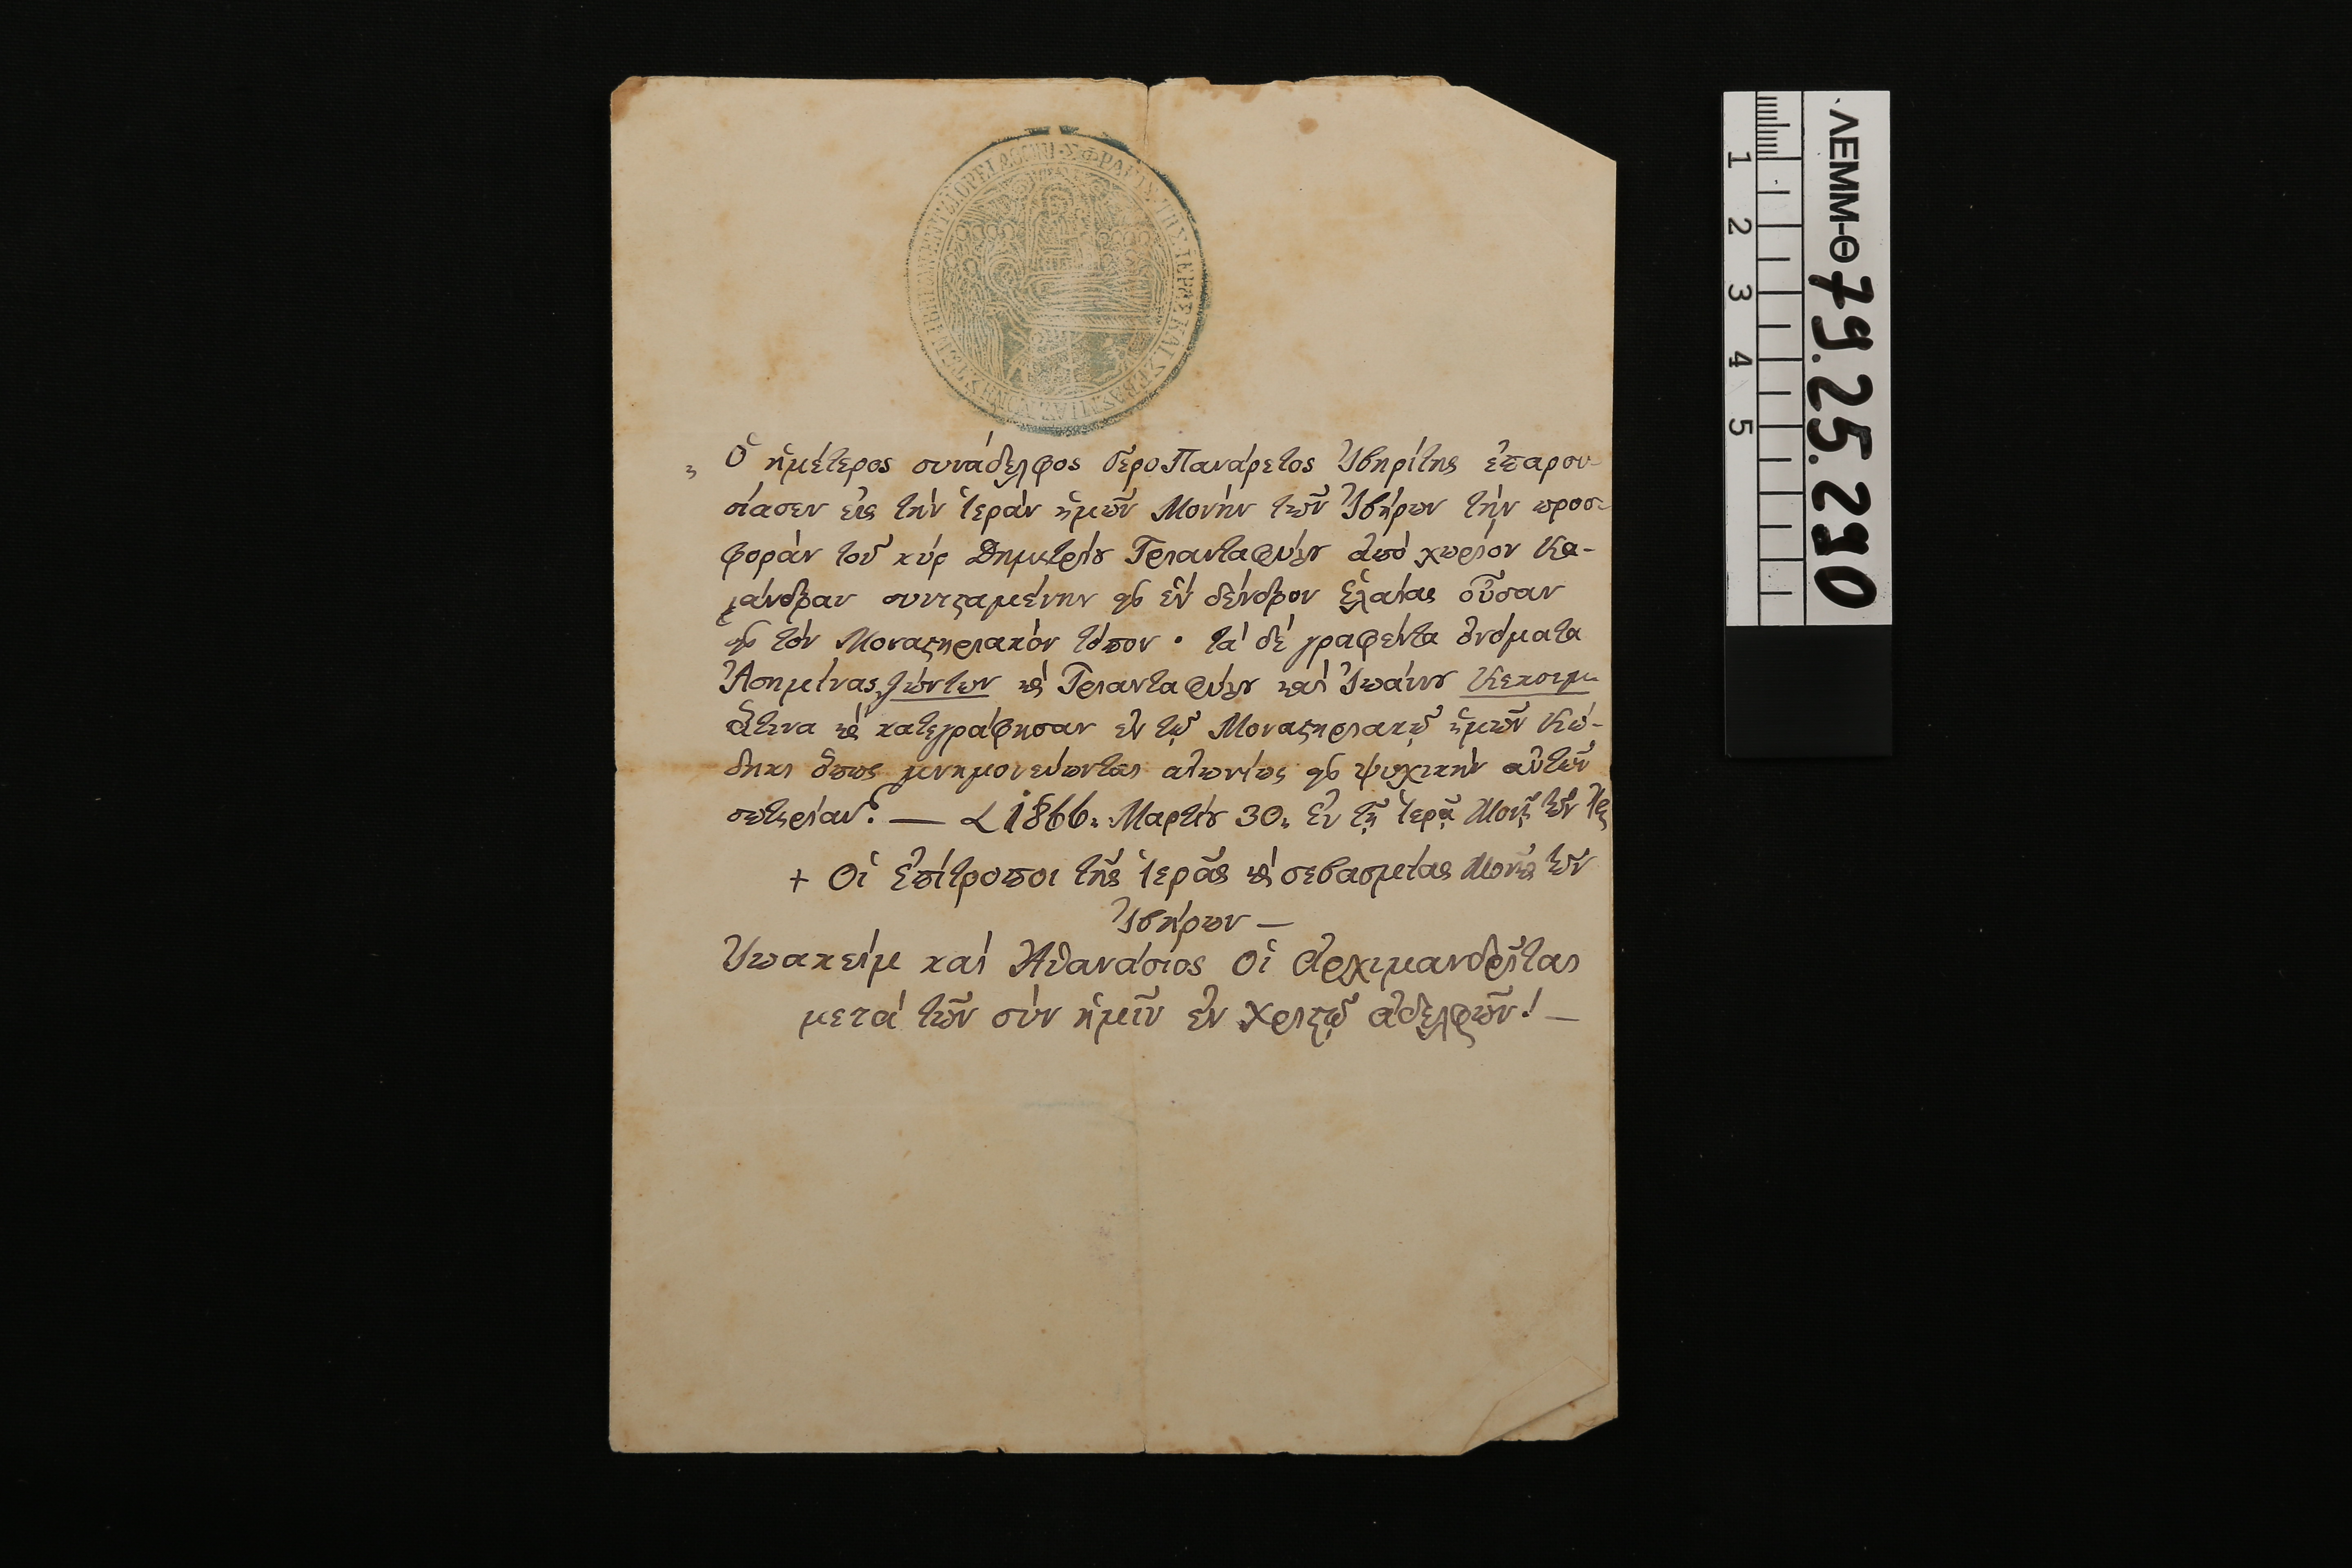 ΣΦΡΑΓΙΣ ΤΗΣ ΙΕΡΑΣ ΚΑΙ ΣΕΒΑΣΜΙΑΣ ΜΟΝΗΣ ΤΩΝ ΙΒΗΡΩΝ ΕΝ ΤΩ ΟΡΕΙ ΑΘΩΝΙ
Ὁ ἡμέτερος συνάδελφος Γέρο Πανάρετος Ἰβηρίτης ἐπαρου-
σίασεν εἰς τὴν ἱερὰν ἡμῶν Μονὴν τῶν Ἰβήρων τὴν προσ-
φορὰν τοῦ κύρ Δημητρίου Τριανταφύλλου ἀπὸ χωρίον Κα-
λάνδραν συνισταμένην εἰς ἓν δένδρον ἐλαίας οὖσαν
εἰς τὸν Μοναστηριακὸν τόπον · τὰ δὲ γραφέντα ὀνόματα
Ἀσημίνας ζώντων καὶ Τριανταφύλλου καὶ Ἰωάννου Κεκοιμ
ἅτινα καὶ κατεγράφησαν ἐν τῷ Μοναστηριακῷ ἡμῶν Κώ-
δηκι ὅπως μνημονεύωνται αἰωνίως εἰς ψυχικὴν αὐτῶν
σωτηρίαν. — 1866. Μαρτίου 30. Ἐν τῇ ἱερᾷ Μονῇ τῶν
+ Οἱ Ἐπίτροποι τῆς ἱερᾶς καὶ σεβασμίας Μονῆς τῶν
Ἰβήρων —
Ἰωακεὶμ καὶ Ἀθανάσιος οἱ ἀρχιμανδρῖται
μετὰ τῶν σὺν ἡμῖν ἐν Χριστῷ ἀδελφῶν! —
ΛΕΜΜ-Θ 79.25.290
1 2 3 4 5